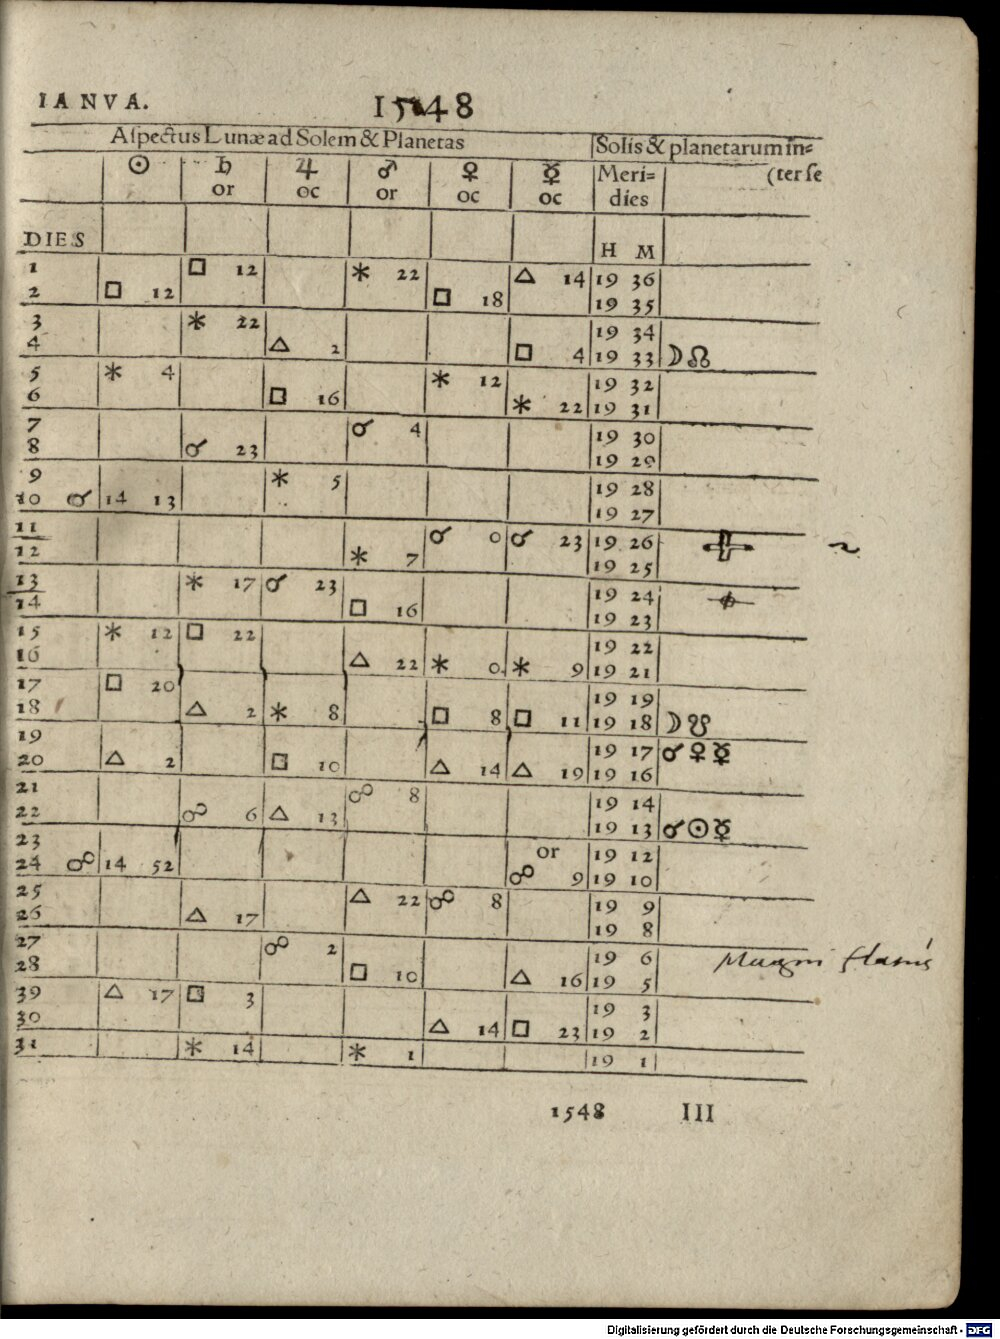 IANVA. 1548
Aſpectus Lunæ ad Solem & Planetas Solis & planetarum in=
☉ ♄ ♃ ♂ ♀ ☿ Meri= (ter ſe
or oc or oc oc dies
DIES H M
1 □ 12 ⚹ 22 △ 14 19 36
2 □ 12 □ 18 19 35
3 ⚹ 22 19 34
4 △ 2 □ 4 19 33 ☽☊
5 ⚹ 4 ⚹ 12 19 32
6 □ 16 ⚹ 22 19 31
7 ☌ 4 19 30
8 ☌ 23 19 29
9 ⚹ 5 19 28
10 ☌ 14 13 19 27
11 ☌ 0 ☌ 23 19 26
12 ⚹ 7 19 25
13 ⚹ 17 ☌ 23 19 24
14 □ 16 19 23
15 ⚹ 12 □ 22 19 22
16 △ 22 ⚹ 0 ⚹ 9 19 21
17 □ 20 19 19
18 △ 2 ⚹ 8 □ 8 □ 11 19 18 ☽☋
19 19 17 ☌♀☿
20 △ 2 □ 10 △ 14 △ 19 19 16
21 ☍ 8 19 14
22 ☍ 6 △ 13 19 13 ☌☉☿
23 or 19 12
24 ☍ 14 52 ☍ 9 19 10
25 △ 22 ☍ 8 19 9
26 △ 17 19 8
27 ☍ 2 19 6
28 □ 10 △ 16 19 5
39 △ 17 □ 3 19 3
30 △ 14 □ 23 19 2
31 ⚹ 14 ⚹ 1 19 1
1548 III
Digitalisierung gefördert durch die Deutsche Forschungsgemeinschaft - DFG